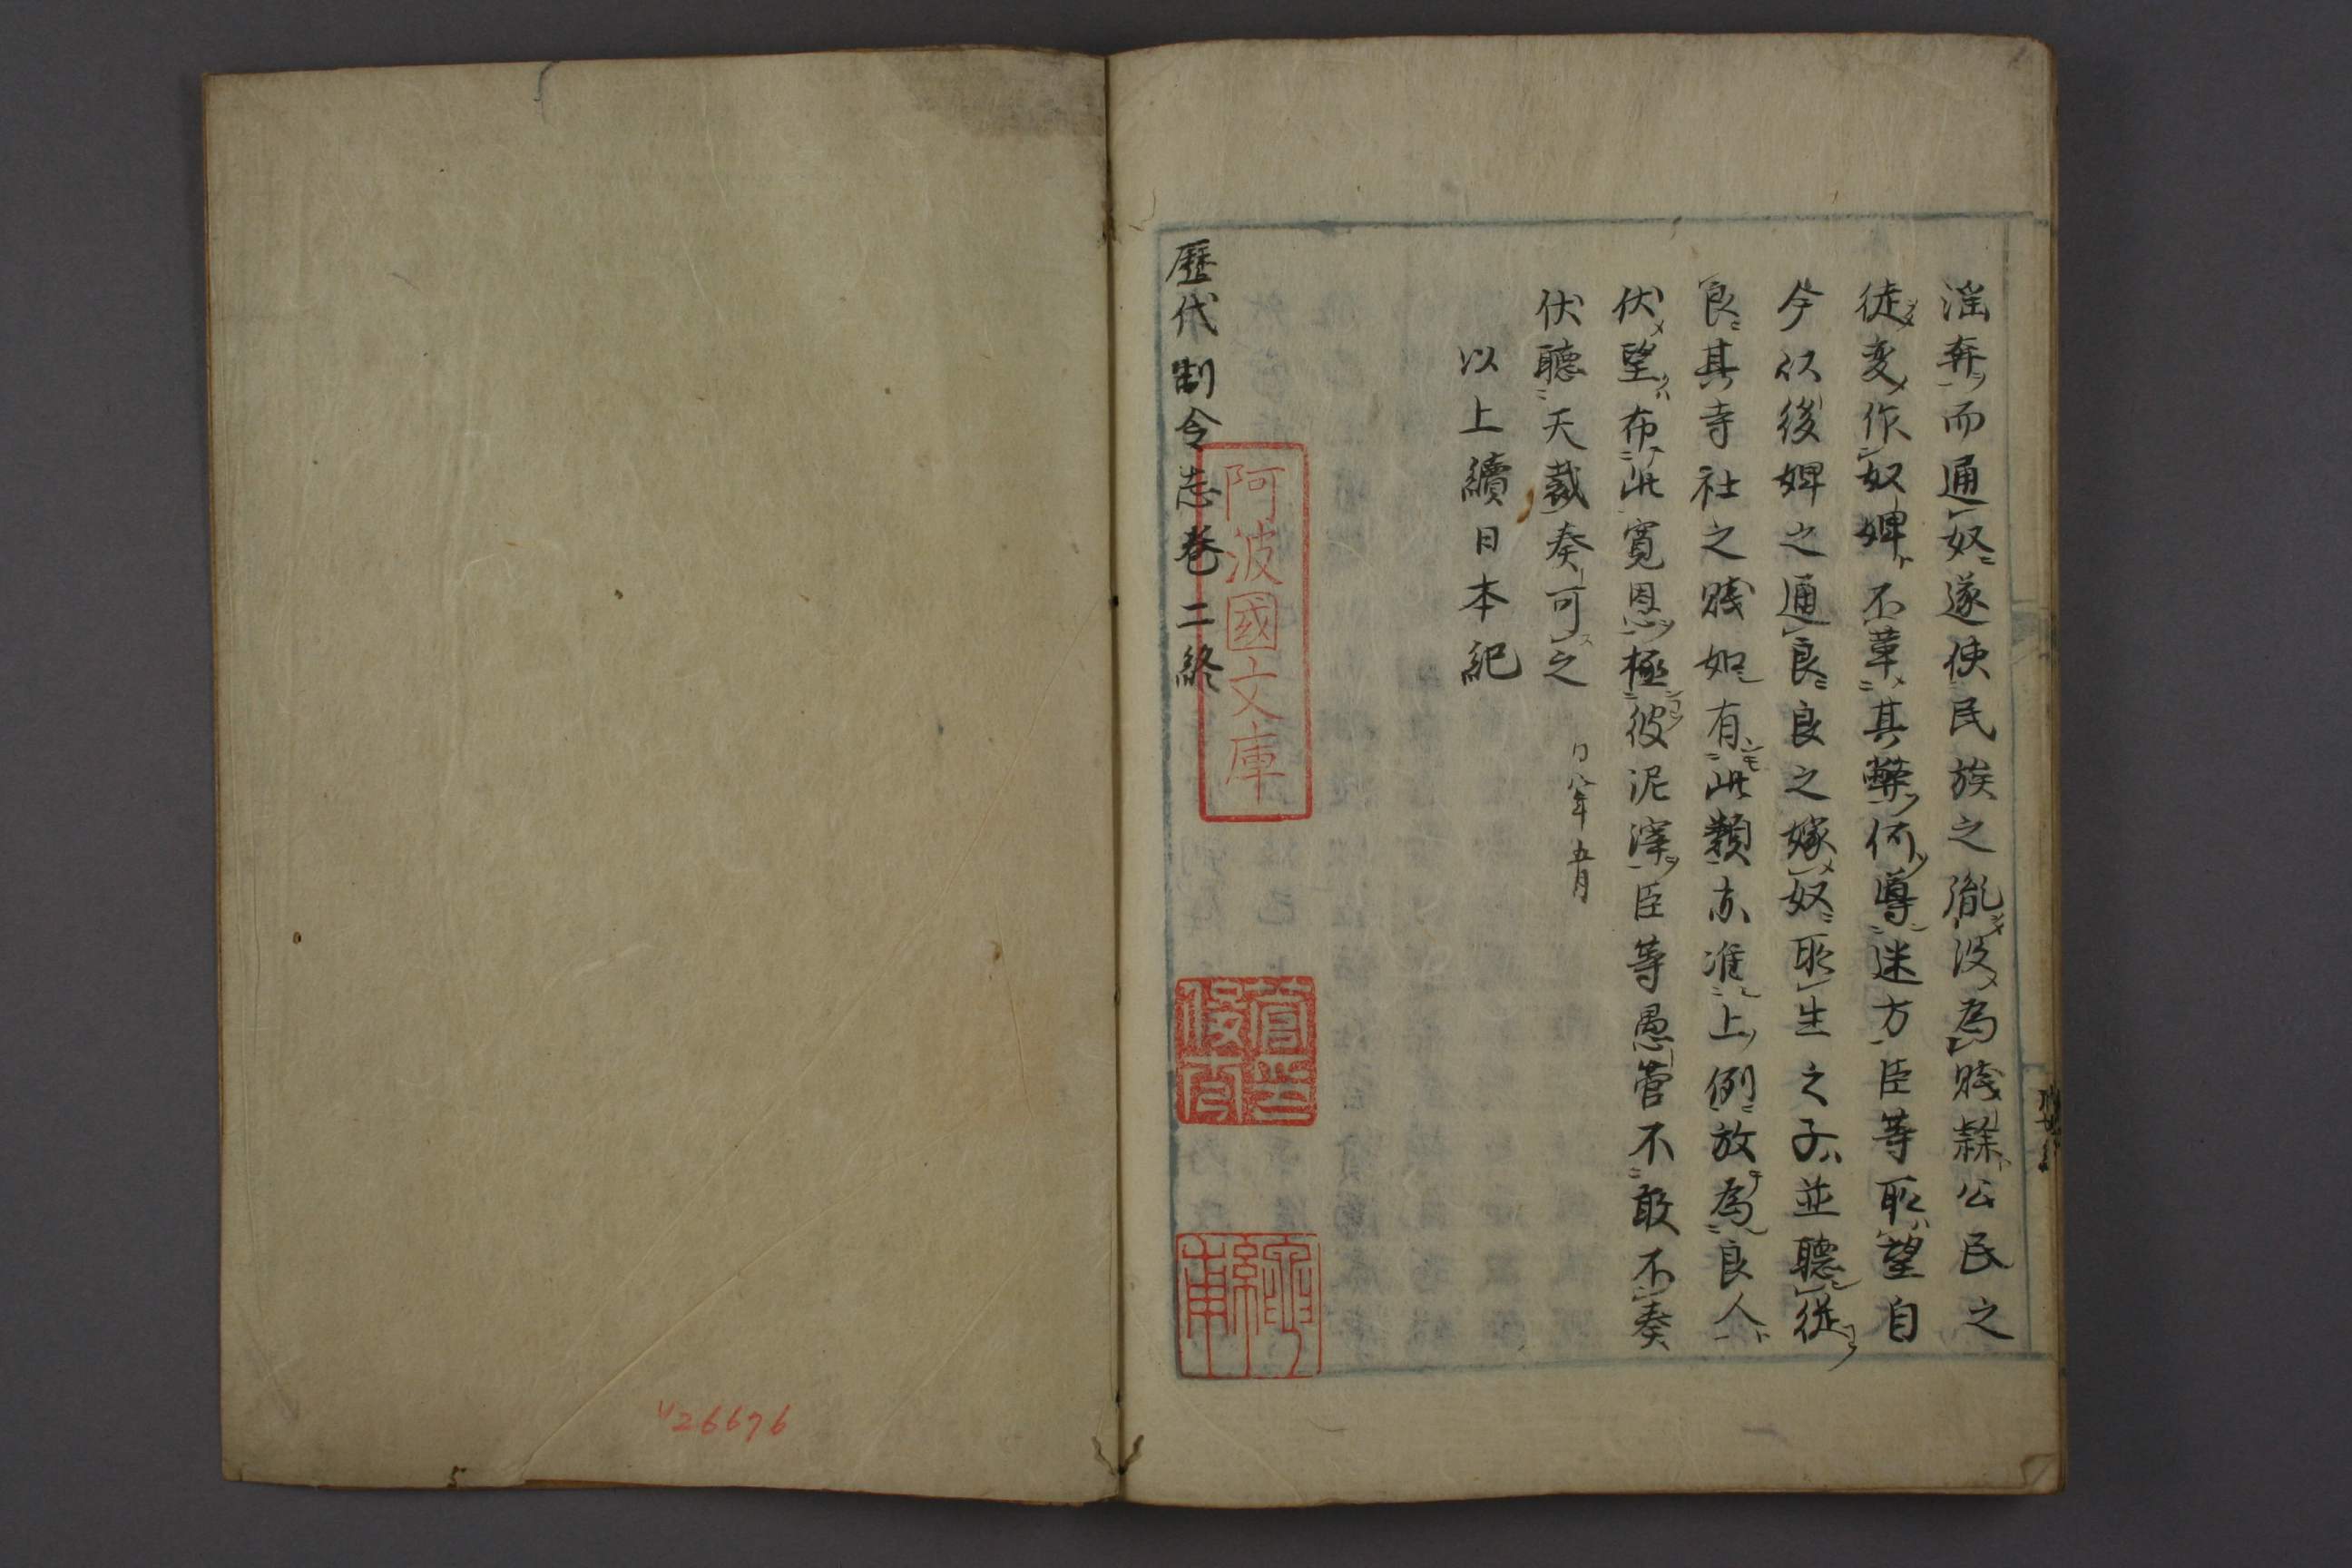 淫奔而通奴遂使民族之胤没為賤隷公民之
徒変作奴婢不革其弊何導迷方臣等所望自
今以後婢之通良良之嫁奴所生之子並聴従
良其寺社之賤如有此類亦准上例放為良人
伏望布此寛恩極彼泥滓臣等愚管不敢不奏
伏聴天裁奏可之 八年五月
以上續日本紀
歴代制令志巻二終
阿波國文庫
26676